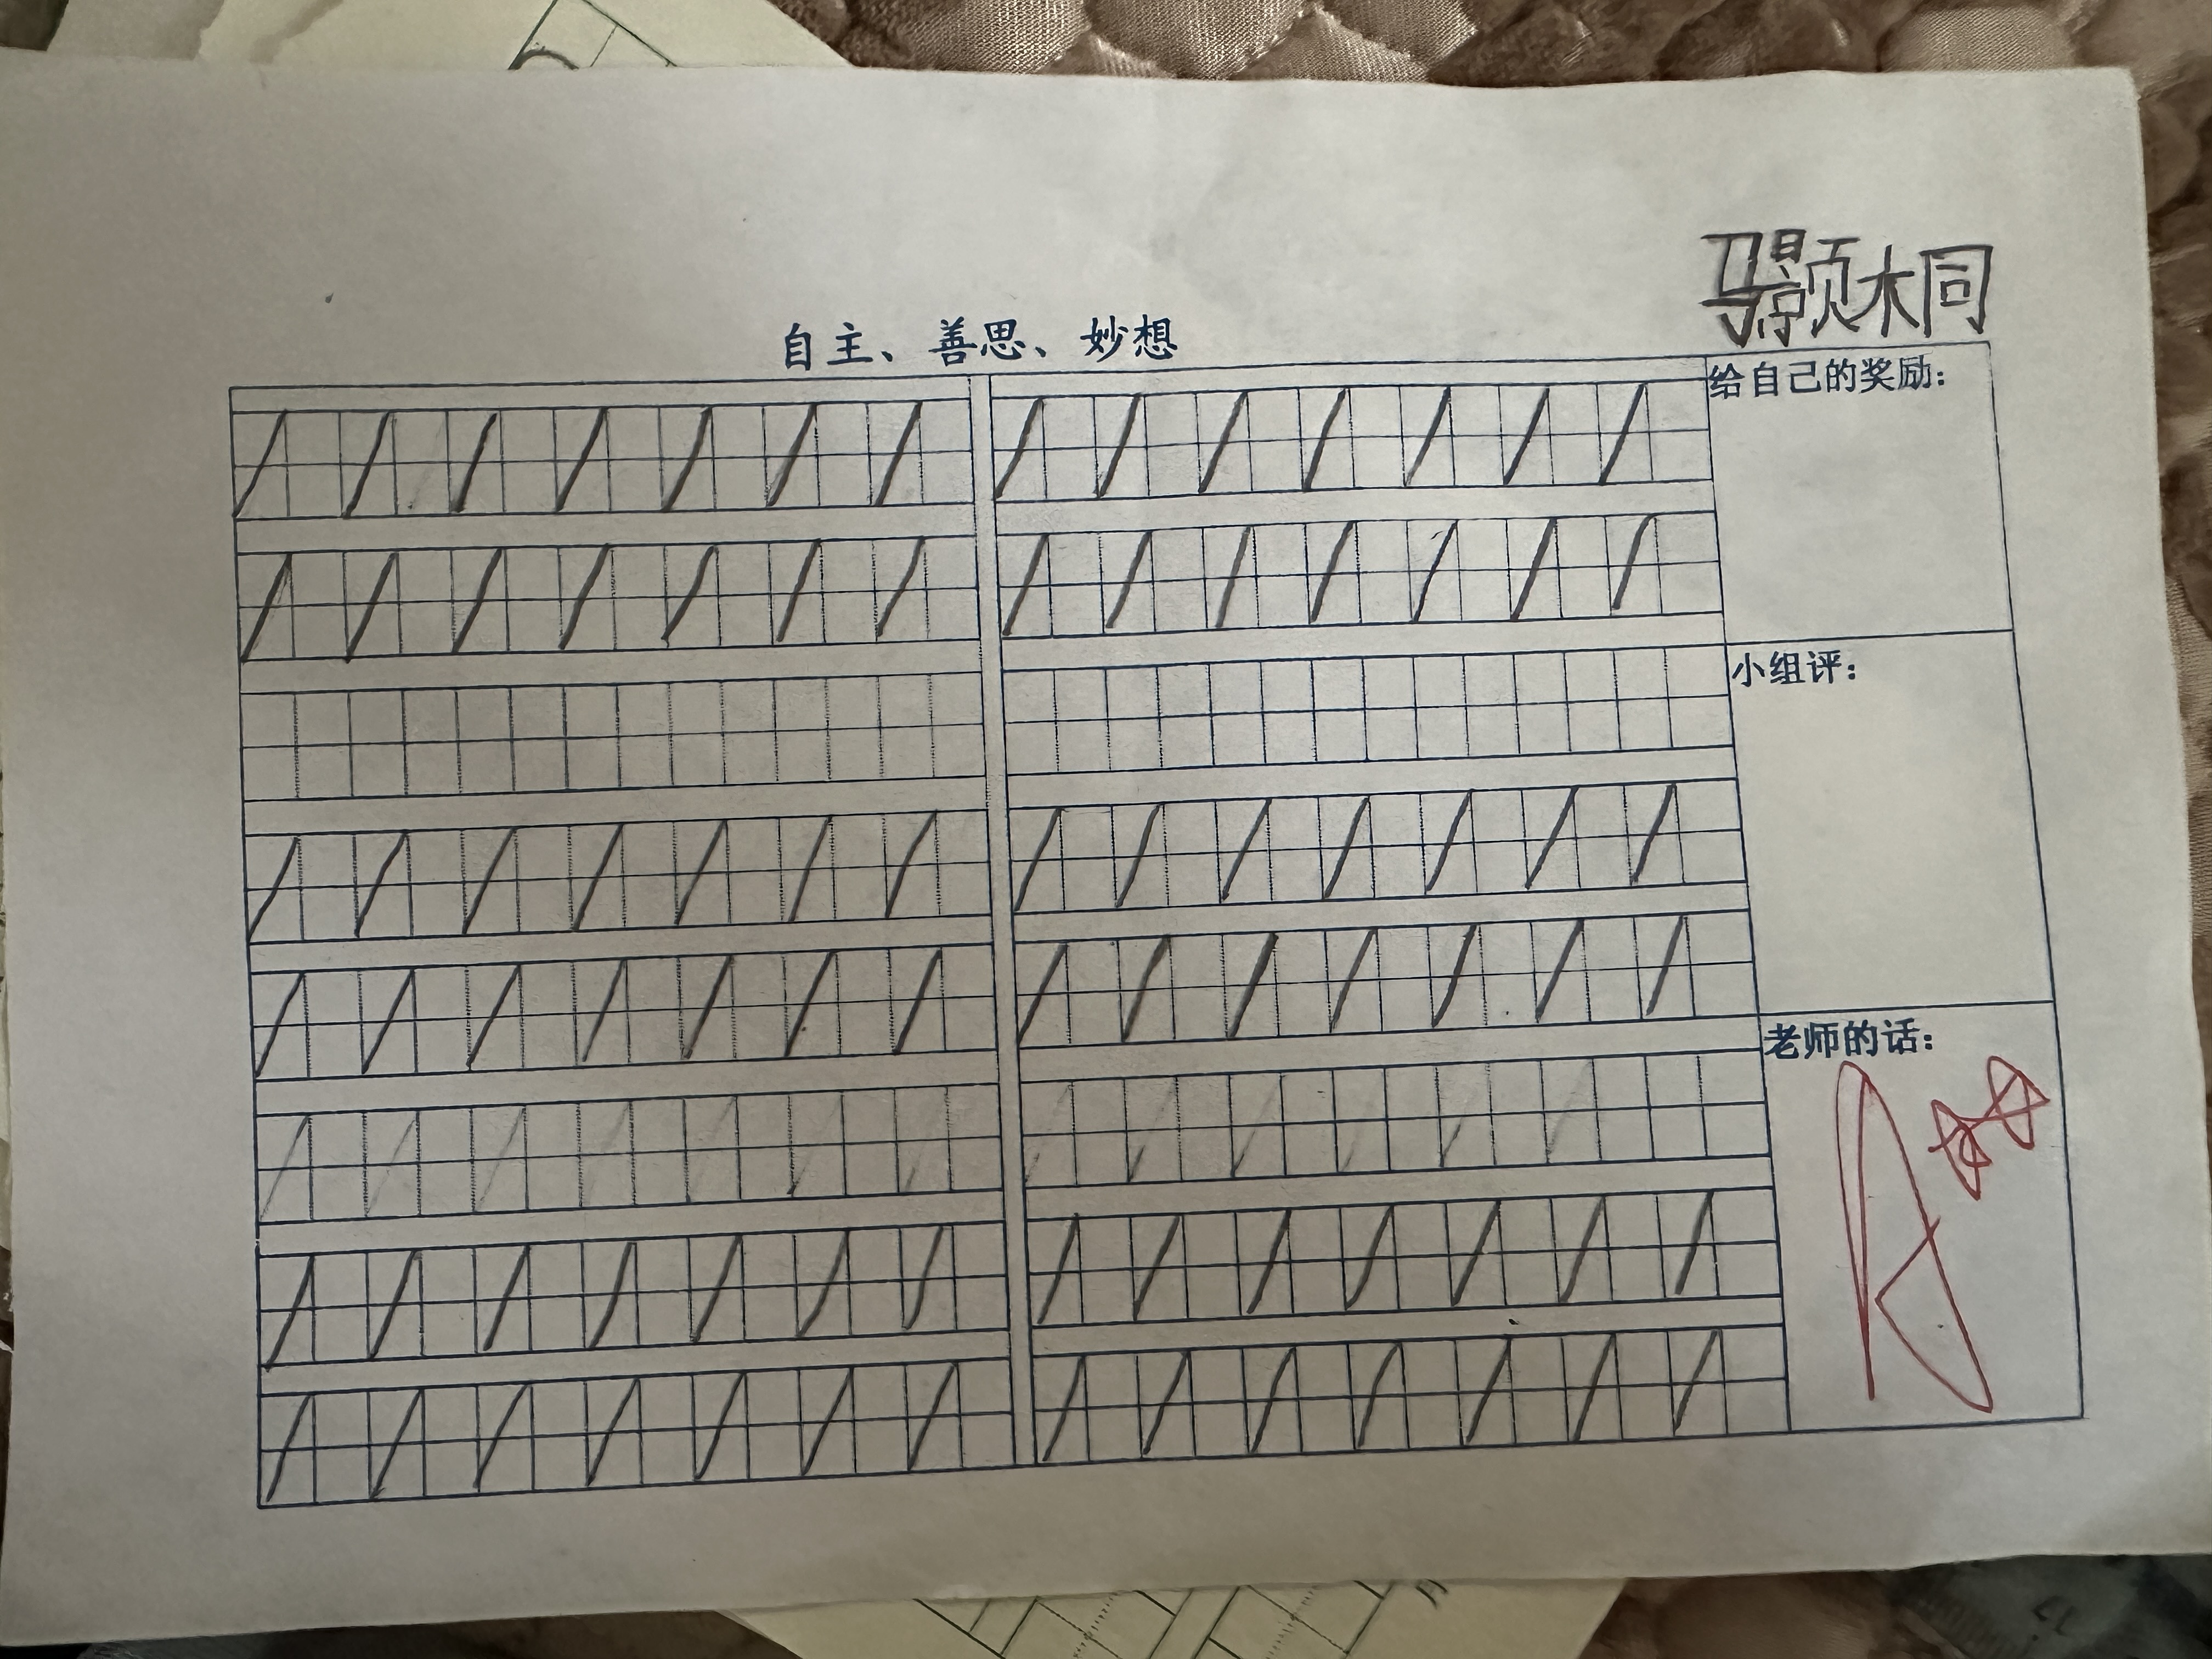 马颢桐
自主、善思、妙想
给自己的奖励：
小组评：
老师的话：
A